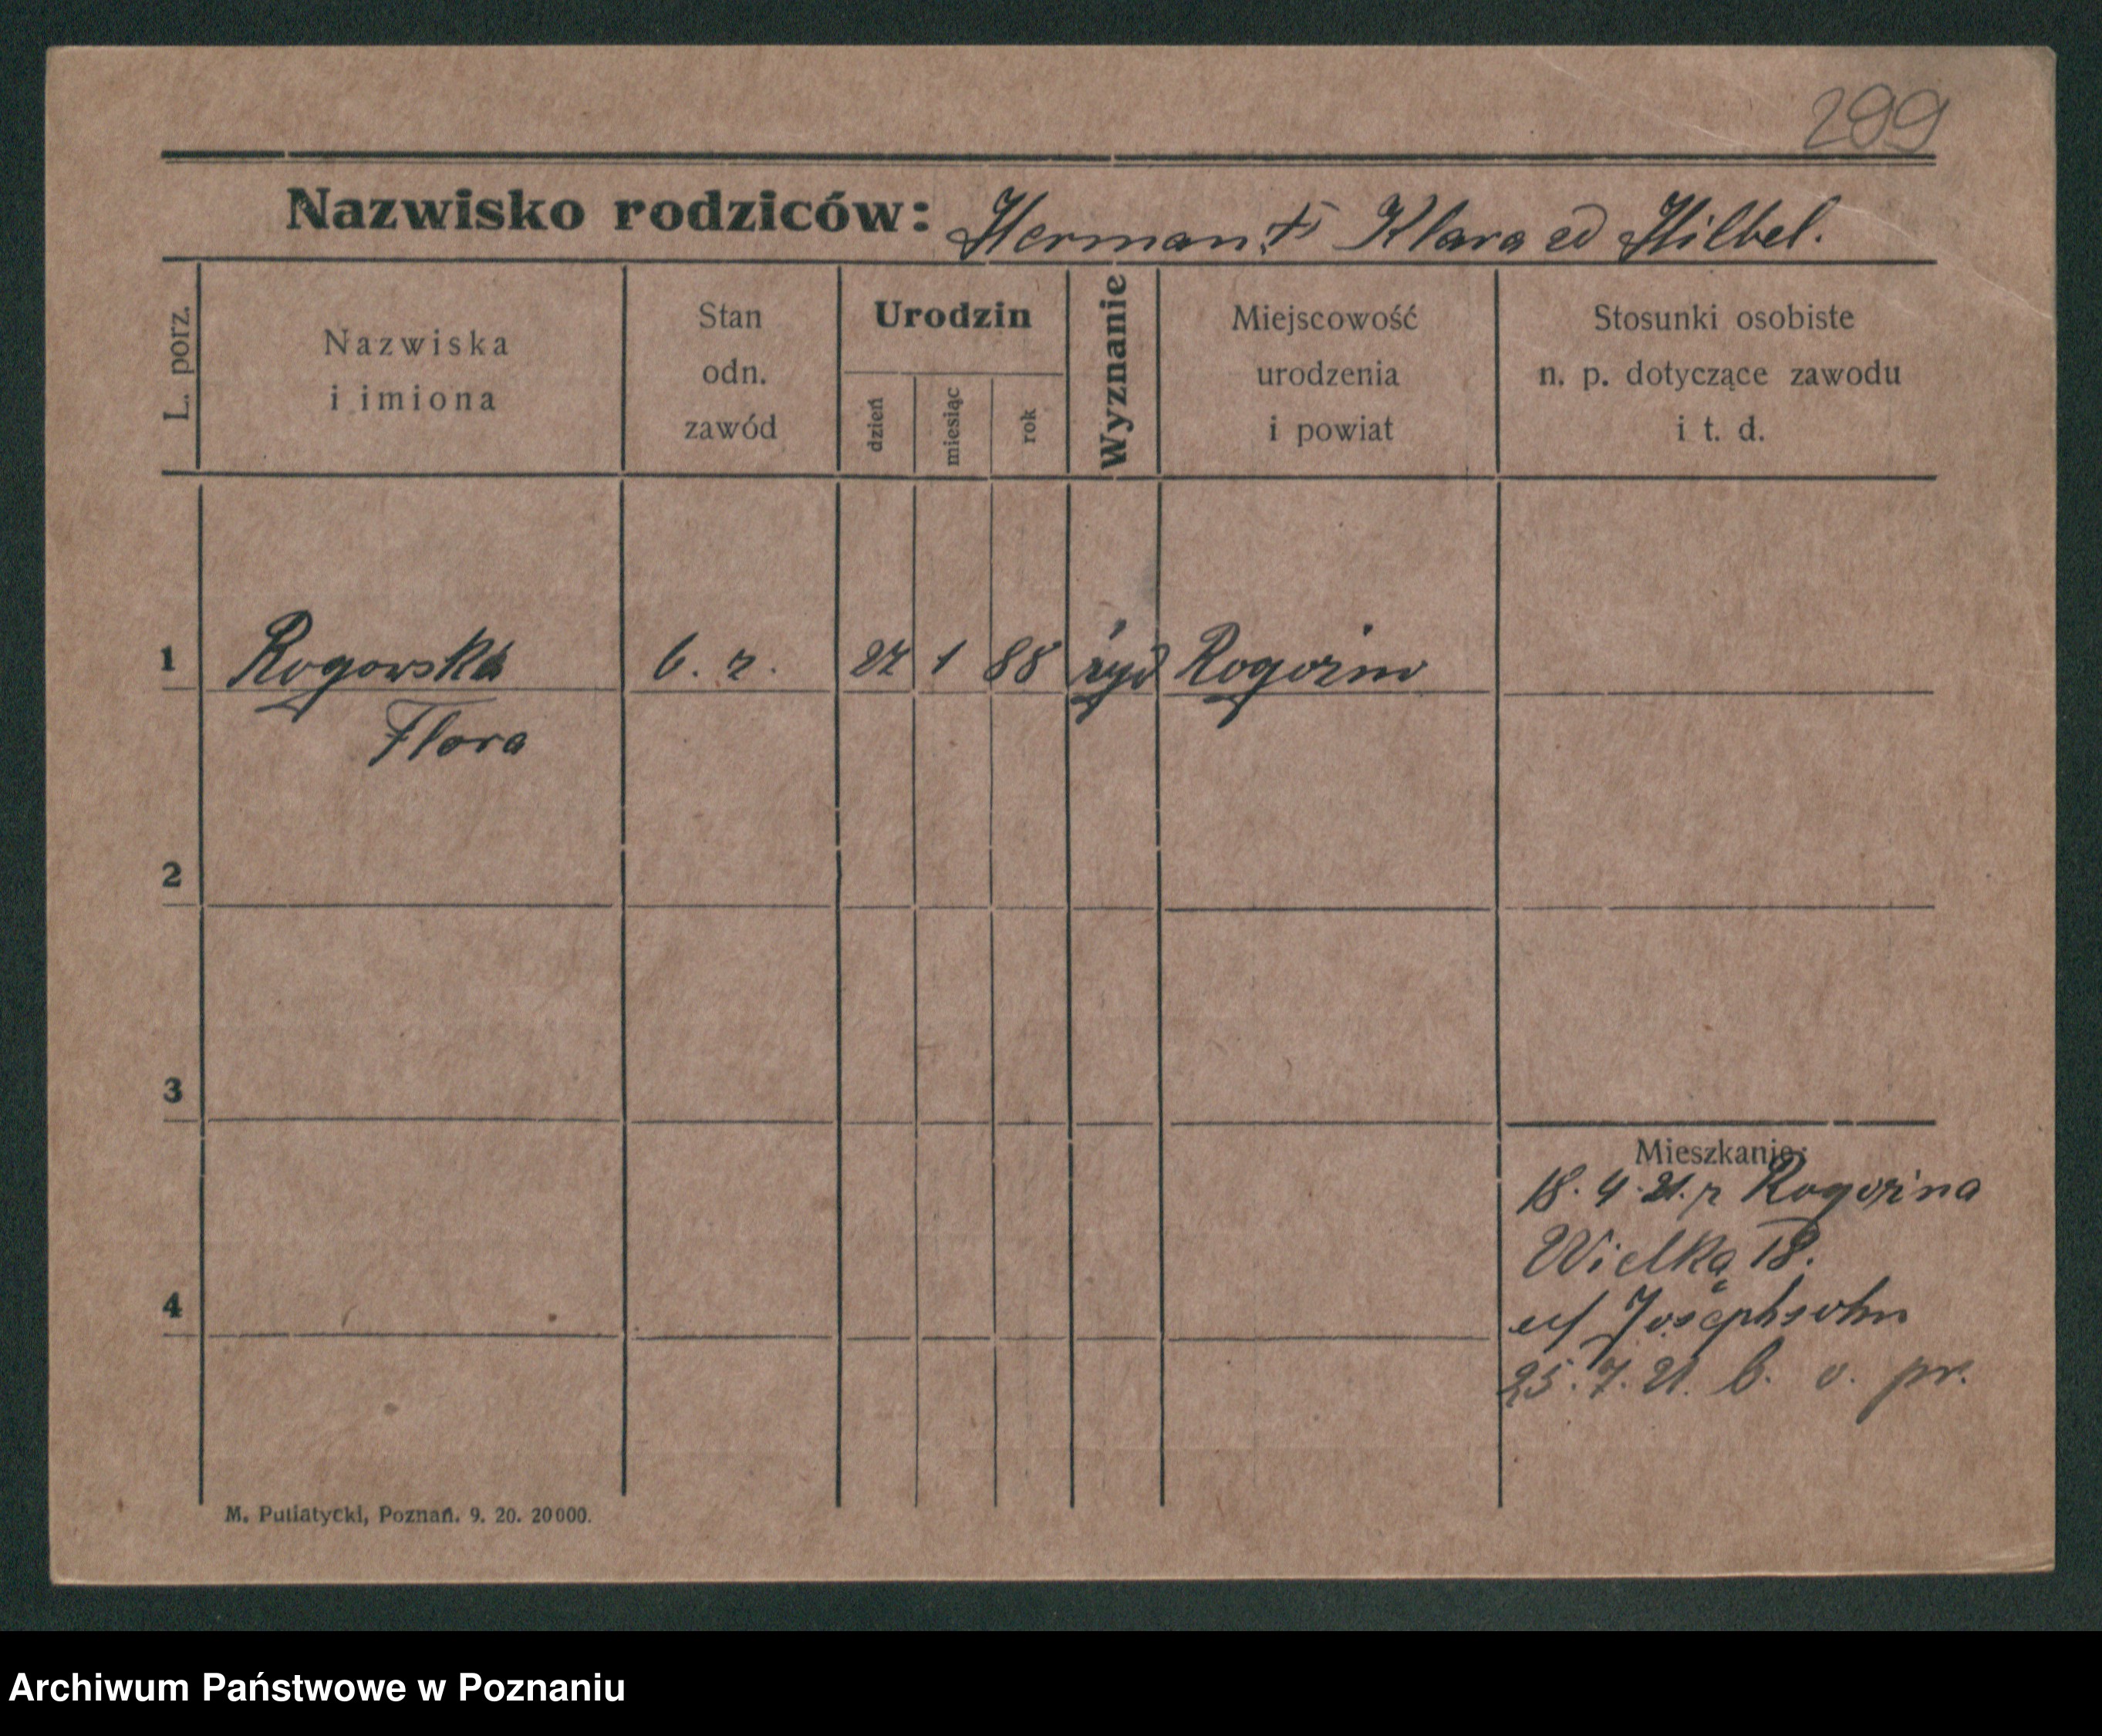 299
Nazwisko rodziców: Herman † Klara zd Hilbel.
L. porz.
Nazwiska i imiona
Stan odn. zawód
Urodzin
dzień
miesiąc
rok
Wyznanie
Miejscowość urodzenia i powiat
Stosunki osobiste n. p. dotyczące zawodu i t. d.
1 Rogowska b. z. 27 1 88 żyd Rogoźno
Flora
2
3
4
Mieszkanie:
18. 4. 21. z Rogoźna
Wielka 18.
Josephsohn
25. 7. 21. b. o. pr.
M. Putiatycki, Poznań. 9. 20. 20000.
Archiwum Państwowe w Poznaniu